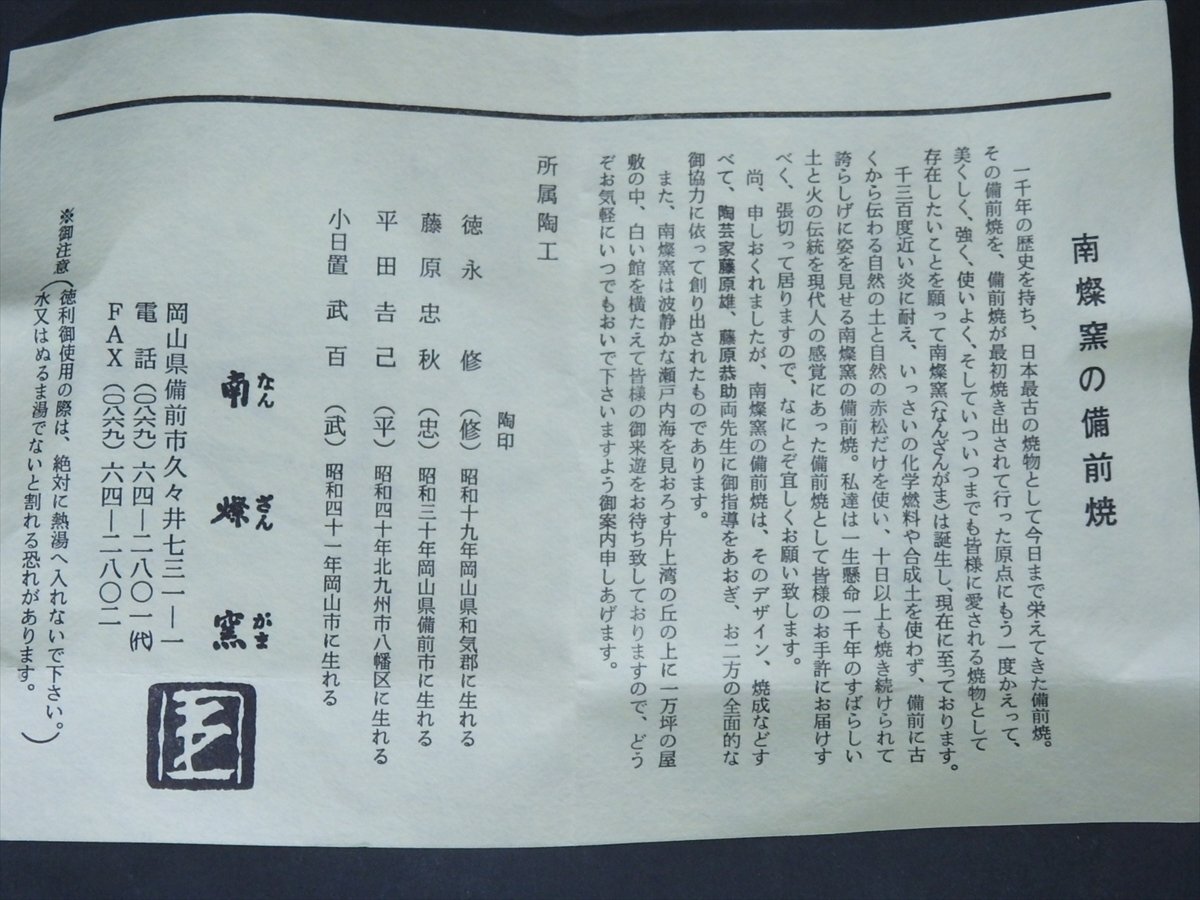 南燦窯の備前焼
一千年の歴史を持ち、日本最古の焼物として今日まで栄えてきた備前焼。
その備前焼を、備前焼が最初焼き出されて行った原点にもう一度かえって、
美くしく、強く、使いよく、そしていついつまでも皆様に愛される焼物として
存在したいことを願って南燦窯(なんざんがま)は誕生し、現在に至っております。
千三百度近い炎に耐え、いっさいの化学燃料や合成土を使わず、備前に古
くから伝わる自然の土と自然の赤松だけを使い、十日以上も焼き続けられて
誇らしげに姿を見せる南燦窯の備前焼。私達は一生懸命一千年のすばらしい
土と火の伝統を現代人の感覚にあった備前焼として皆様のお手許にお届けす
べく、張切って居りますので、なにとぞ宜しくお願い致します。
尚、申しおくれましたが、南燦窯の備前焼は、そのデザイン、焼成などす
べて、陶芸家藤原雄、藤原恭助両先生に御指導をあおぎ、お二方の全面的な
御協力に依って創り出されたものであります。
また、南燦窯は波静かな瀬戸内海を見おろす片上湾の丘の上に一万坪の屋
敷の中、白い館を横たえて皆様の御来遊をお待ち致しておりますので、どう
ぞお気軽にいつでもおいで下さいますよう御案内申しあげます。
所属陶工
陶印
徳永 修 (修) 昭和十九年岡山県和気郡に生れる
藤原忠秋 (忠) 昭和三十年岡山県備前市に生れる
平田𠮷己 (平) 昭和四十年北九州市八幡区に生れる
小日置 武百 (武) 昭和四十一年岡山市に生れる
なん ざん がま
南燦窯
岡山県備前市久々井七三一―一
電話(〇八六九)六四―二八〇一(代)
FAX(〇八六九)六四―二八〇二
※御注意(徳利御使用の際は、絶対に熱湯へ入れないで下さい。
水又はぬるま湯でないと割れる恐れがあります。)